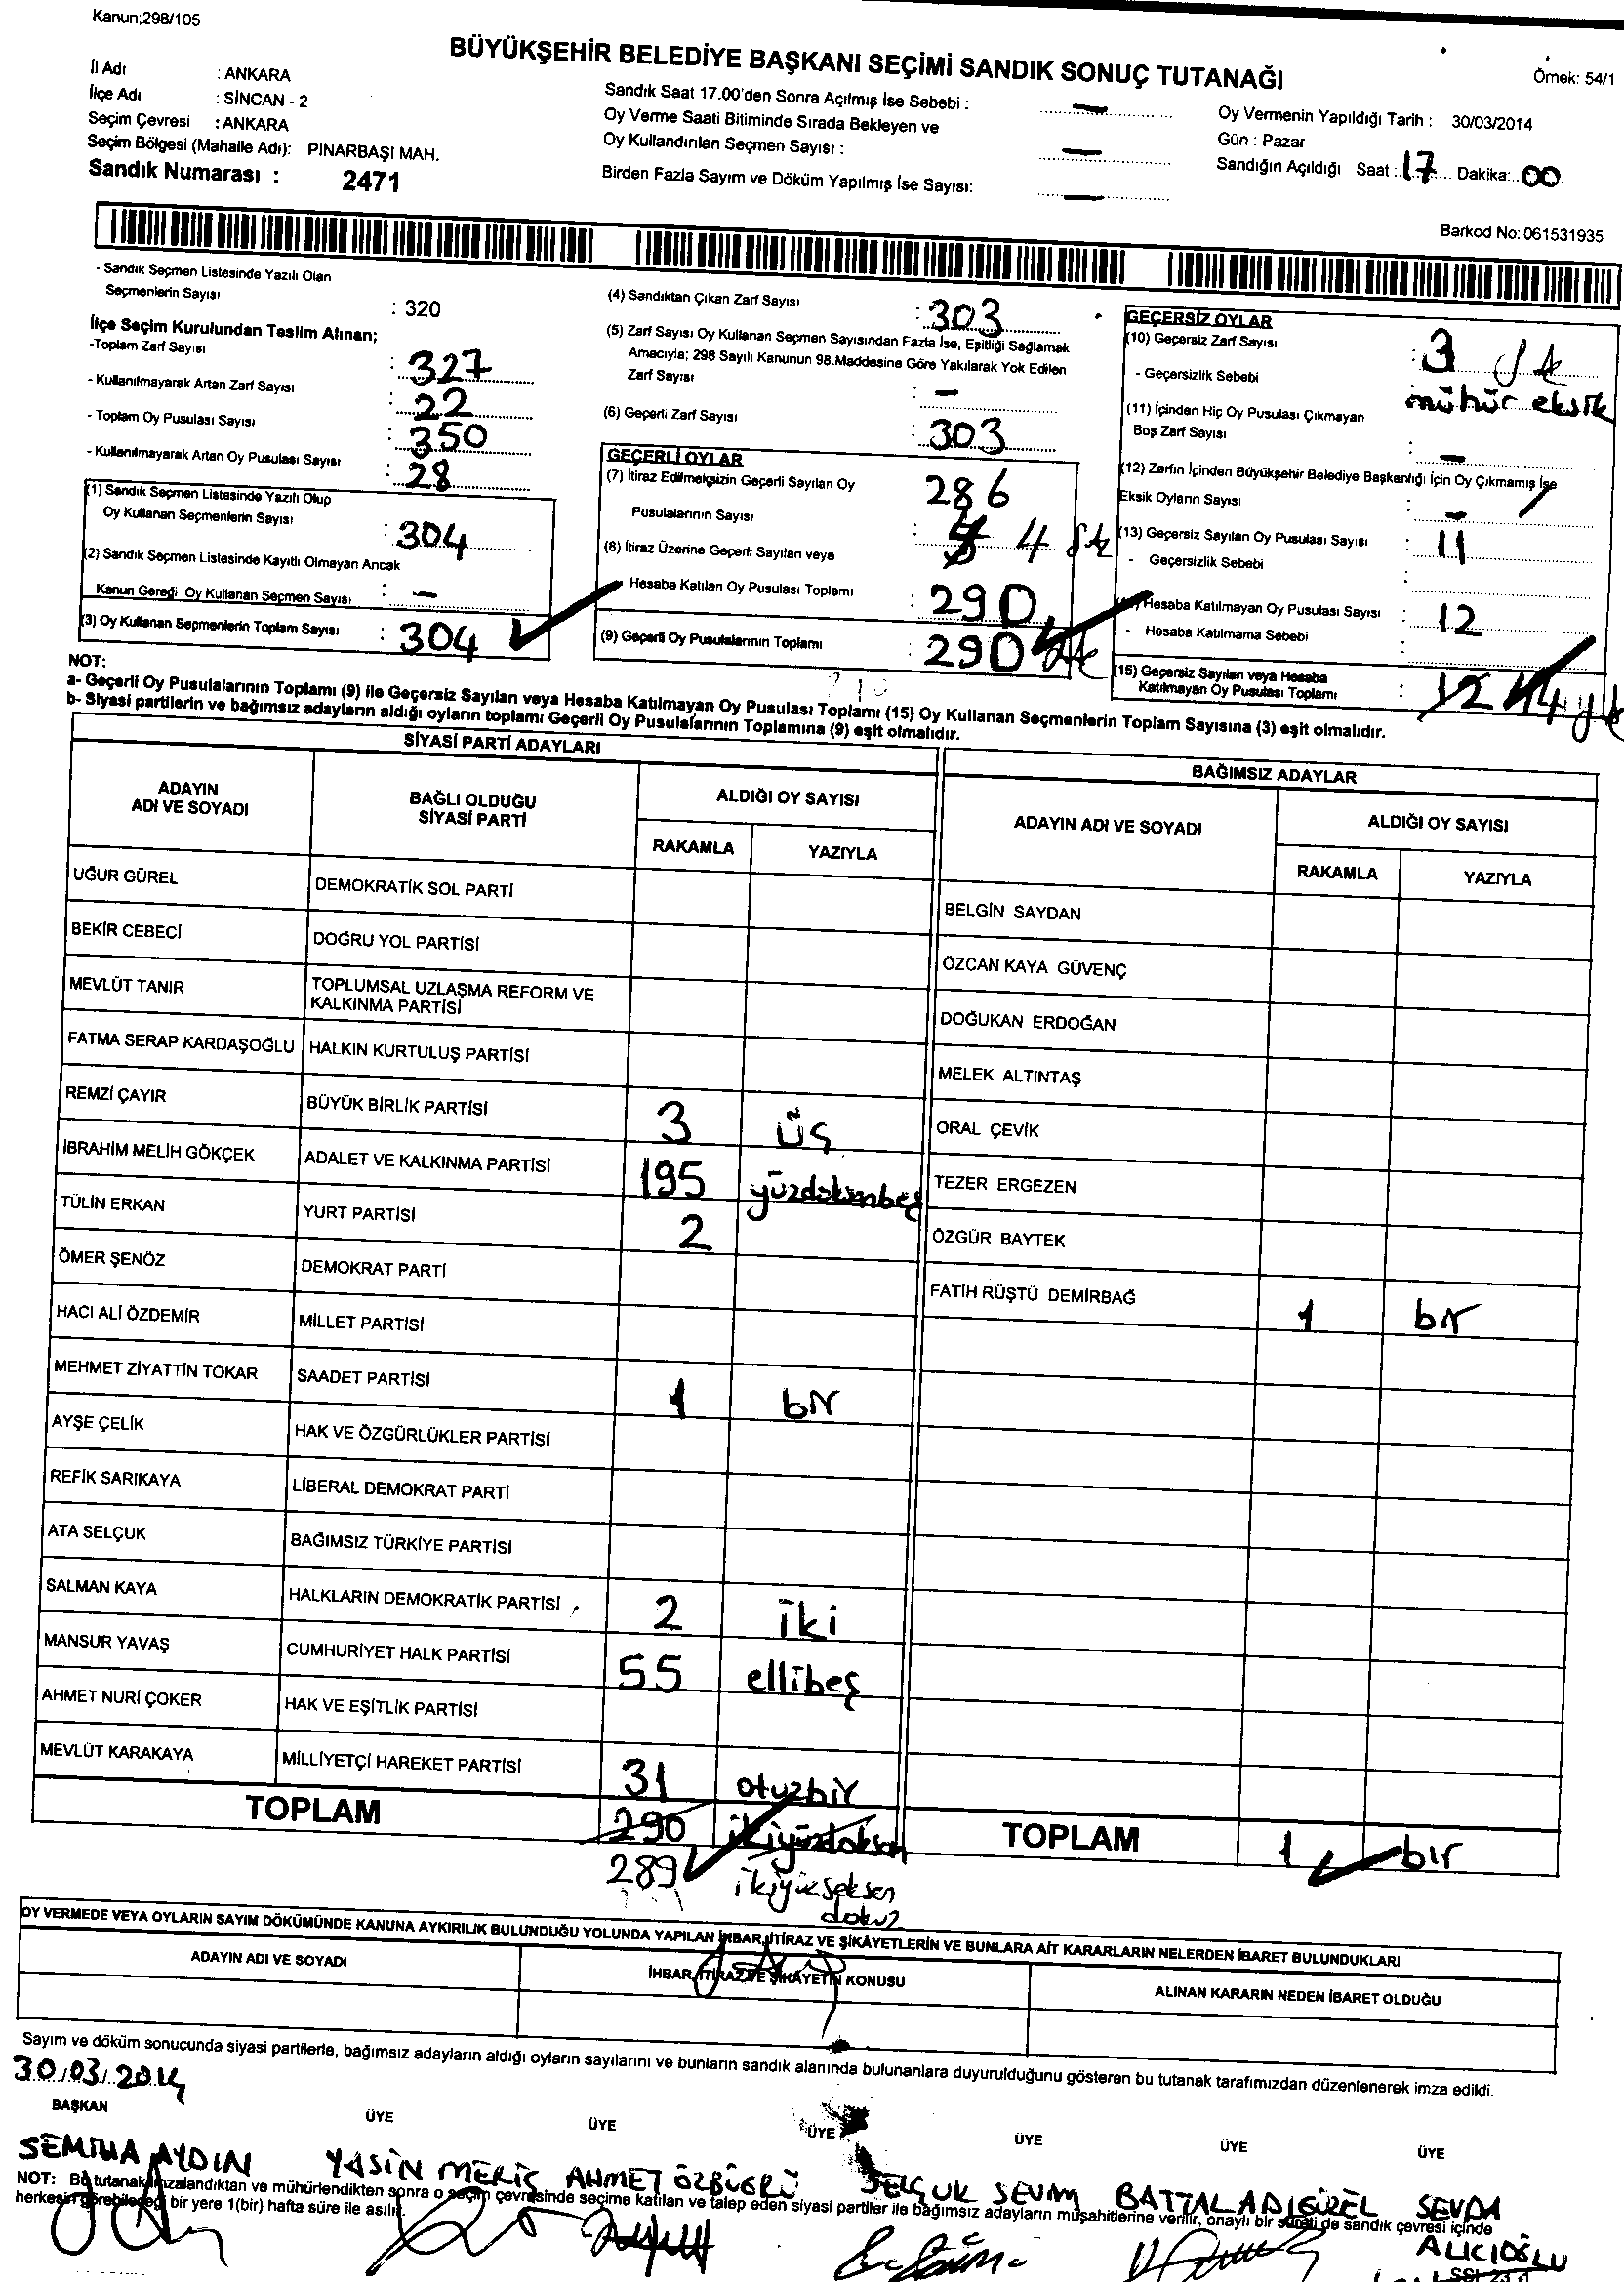 Kanun;298/105
BÜYÜKŞEHİR BELEDİYE BAŞKANI SEÇİMİ SANDIK SONUÇ TUTANAĞI
Örnek: 54/1
İl Adı : ANKARA
İlçe Adı : SİNCAN - 2
Seçim Çevresi : ANKARA
Seçim Bölgesi (Mahalle Adı): PINARBAŞI MAH.
Sandık Numarası : 2471
Sandık Saat 17.00'den Sonra Açılmış İse Sebebi : —
Oy Verme Saati Bitiminde Sırada Bekleyen ve
Oy Kullandırılan Seçmen Sayısı : —
Birden Fazla Sayım ve Döküm Yapılmış İse Sayısı: —
Oy Vermenin Yapıldığı Tarih : 30/03/2014
Gün : Pazar
Sandığın Açıldığı Saat : 17 Dakika: 00
Barkod No: 061531935
- Sandık Seçmen Listesinde Yazılı Olan
Seçmenlerin Sayısı : 320
İlçe Seçim Kurulundan Teslim Alınan;
-Toplam Zarf Sayısı : 327
- Kullanılmayarak Artan Zarf Sayısı : 22
- Toplam Oy Pusulası Sayısı : 350
- Kullanılmayarak Artan Oy Pusulası Sayısı : 28
(1) Sandık Seçmen Listesinde Yazılı Olup
Oy Kullanan Seçmenlerin Sayısı : 304
(2) Sandık Seçmen Listesinde Kayıtlı Olmayan Ancak
Kanun Gereği Oy Kullanan Seçmen Sayısı : —
(3) Oy Kullanan Seçmenlerin Toplam Sayısı : 304
(4) Sandıktan Çıkan Zarf Sayısı : 303
(5) Zarf Sayısı Oy Kullanan Seçmen Sayısından Fazla İse, Eşitliği Sağlamak
Amacıyla; 298 Sayılı Kanunun 98.Maddesine Göre Yakılarak Yok Edilen
Zarf Sayısı : —
(6) Geçerli Zarf Sayısı : 303
GEÇERLİ OYLAR
(7) İtiraz Edilmeksizin Geçerli Sayılan Oy
Pusulalarının Sayısı : 286
(8) İtiraz Üzerine Geçerli Sayılan veya 4
Hesaba Katılan Oy Pusulası Toplamı : 290
(9) Geçerli Oy Pusulalarının Toplamı : 290
GEÇERSİZ OYLAR
(10) Geçersiz Zarf Sayısı : 3
- Geçersizlik Sebebi mühür eksik
(11) İçinden Hiç Oy Pusulası Çıkmayan
Boş Zarf Sayısı : —
(12) Zarfın İçinden Büyükşehir Belediye Başkanlığı İçin Oy Çıkmamış İse
Eksik Oyların Sayısı : —
(13) Geçersiz Sayılan Oy Pusulası Sayısı : 11
- Geçersizlik Sebebi :
Hesaba Katılmayan Oy Pusulası Sayısı : 12
- Hesaba Katılmama Sebebi :
(15) Geçersiz Sayılan veya Hesaba
Katılmayan Oy Pusulası Toplamı : 12
NOT:
a- Geçerli Oy Pusulalarının Toplamı (9) ile Geçersiz Sayılan veya Hesaba Katılmayan Oy Pusulası Toplamı (15) Oy Kullanan Seçmenlerin Toplam Sayısına (3) eşit olmalıdır.
b- Siyasi partilerin ve bağımsız adayların aldığı oyların toplamı Geçerli Oy Pusulalarının Toplamına (9) eşit olmalıdır.
SİYASİ PARTİ ADAYLARI
ADAYIN ADI VE SOYADI BAĞLI OLDUĞU SİYASİ PARTİ ALDIĞI OY SAYISI
RAKAMLA YAZIYLA
UĞUR GÜREL DEMOKRATİK SOL PARTİ
BEKİR CEBECİ DOĞRU YOL PARTİSİ
MEVLÜT TANIR TOPLUMSAL UZLAŞMA REFORM VE KALKINMA PARTİSİ
FATMA SERAP KARDAŞOĞLU HALKIN KURTULUŞ PARTİSİ
REMZİ ÇAYIR BÜYÜK BİRLİK PARTİSİ 3 üç
İBRAHİM MELİH GÖKÇEK ADALET VE KALKINMA PARTİSİ 195 yüzdoksanbeş
TÜLİN ERKAN YURT PARTİSİ 2
ÖMER ŞENÖZ DEMOKRAT PARTİ
HACI ALİ ÖZDEMİR MİLLET PARTİSİ
MEHMET ZİYATTİN TOKAR SAADET PARTİSİ 1 bir
AYŞE ÇELİK HAK VE ÖZGÜRLÜKLER PARTİSİ
REFİK SARIKAYA LİBERAL DEMOKRAT PARTİ
ATA SELÇUK BAĞIMSIZ TÜRKİYE PARTİSİ
SALMAN KAYA HALKLARIN DEMOKRATİK PARTİSİ 2 iki
MANSUR YAVAŞ CUMHURİYET HALK PARTİSİ 55 ellibeş
AHMET NURİ ÇOKER HAK VE EŞİTLİK PARTİSİ
MEVLÜT KARAKAYA MİLLİYETÇİ HAREKET PARTİSİ 31 otuzbir
TOPLAM 290 ikiyüzdoksan
289 ikiyükseksen
dokuz
BAĞIMSIZ ADAYLAR
ADAYIN ADI VE SOYADI ALDIĞI OY SAYISI
RAKAMLA YAZIYLA
BELGİN SAYDAN
ÖZCAN KAYA GÜVENÇ
DOĞUKAN ERDOĞAN
MELEK ALTINTAŞ
ORAL ÇEVİK
TEZER ERGEZEN
ÖZGÜR BAYTEK
FATİH RÜŞTÜ DEMİRBAĞ 1 bir
TOPLAM 1 bir
OY VERMEDE VEYA OYLARIN SAYIM DÖKÜMÜNDE KANUNA AYKIRILIK BULUNDUĞU YOLUNDA YAPILAN İHBAR, İTİRAZ VE ŞİKÂYETLERİN VE BUNLARA AİT KARARLARIN NELERDEN İBARET BULUNDUKLARI
ADAYIN ADI VE SOYADI İHBAR, İTİRAZ VE ŞİKAYETİN KONUSU ALINAN KARARIN NEDEN İBARET OLDUĞU
Sayım ve döküm sonucunda siyasi partilerle, bağımsız adayların aldığı oyların sayılarını ve bunların sandık alanında bulunanlara duyurulduğunu gösteren bu tutanak tarafımızdan düzenlenerek imza edildi.
30/03/2014
BAŞKAN ÜYE ÜYE ÜYE ÜYE ÜYE ÜYE
SEMİHA AYDIN YASİN MERİÇ AHMET ÖZBÜGRÜ SELÇUK SEVİM BATTAL ADIGÜZEL SEVDA
ALICIOĞLU
NOT: Bu tutanak imzalandıktan ve mühürlendikten sonra o seçim çevresinde seçime katılan ve talep eden siyasi partiler ile bağımsız adayların müşahitlerine verilir, onaylı bir sureti de sandık çevresi içinde
herkesin görebileceği bir yere 1(bir) hafta süre ile asılır.